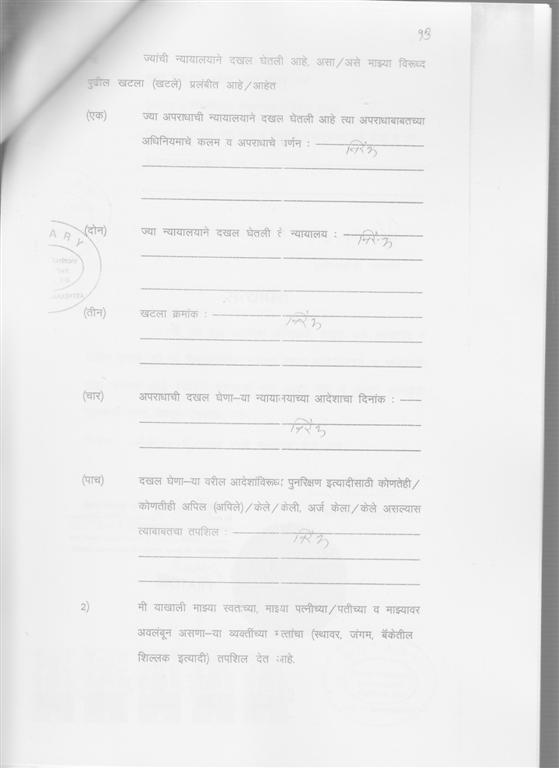 १३
ज्यांची न्यायालयाने दखल घेतली आहे, असा/असे माझ्या विरूध्द
पुढील खटला (खटले) प्रलंबीत आहे/आहेत
(एक) ज्या अपराधाची न्यायालयाने दखल घेतली आहे त्या अपराधाबाबतच्या
अधिनियमाचे कलम व अपराधाचे वर्णन : निरंक
(दोन) ज्या न्यायालयाने दखल घेतली ते न्यायालय : निरंक
ARY
(तीन) खटला क्रमांक : निरंक
(चार) अपराधाची दखल घेणा–या न्यायालयाच्या आदेशाचा दिनांक :
निरंक
(पाच) दखल घेणा–या वरील आदेशांविरूध्द पुनरिक्षण इत्यादीसाठी कोणतेही/
कोणतीही अपिल (अपिले)/केले/केली, अर्ज केला/केले असल्यास
त्याबाबतचा तपशिल : निरंक
2) मी याखाली माझ्या स्वतःच्या, माझ्या पत्नीच्या/पतीच्या व माझ्यावर
अवलंबून असणा–या व्यक्तींच्या मत्तांचा (स्थावर, जंगम, बॅंकेतील
शिल्लक इत्यादी) तपशिल देत आहे.